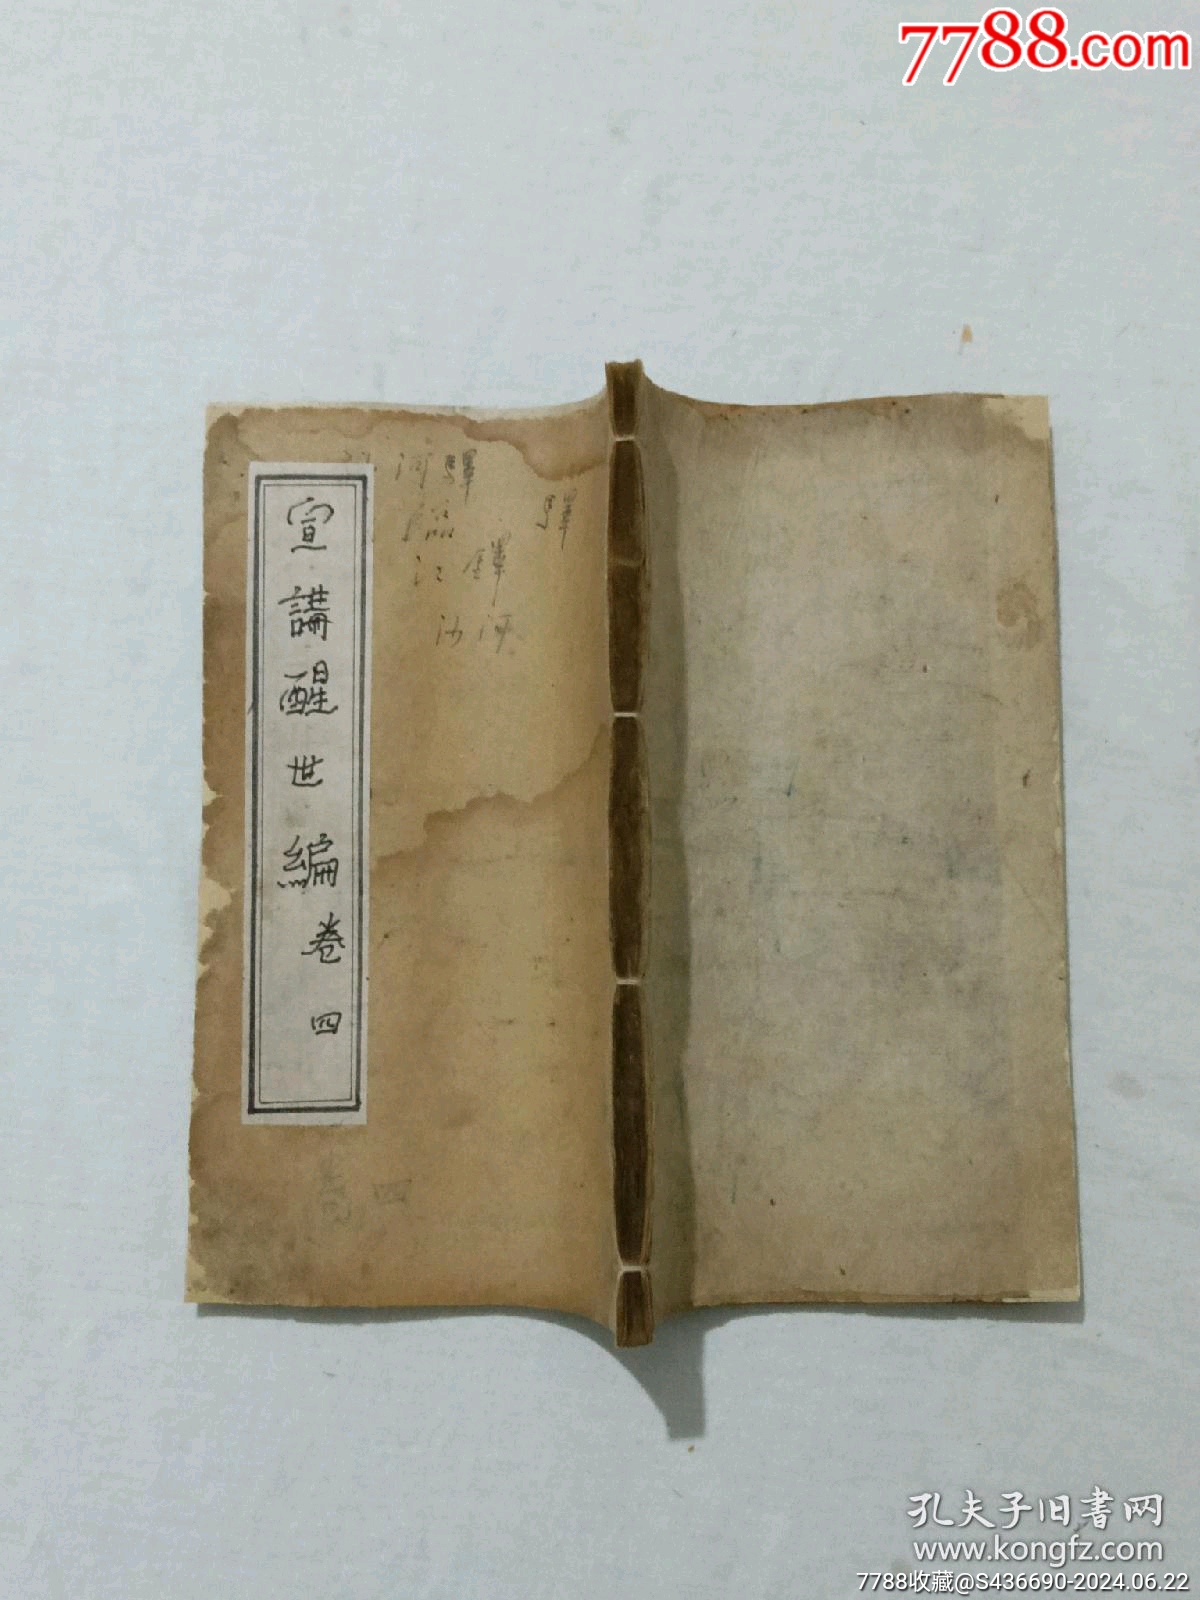 7788.com
宣講醒世編卷四
驛
河驛
臨
江鐸
沙河
四
孔夫子旧書网
www.kongfz.com
7788收藏@S436690-2024.06.22